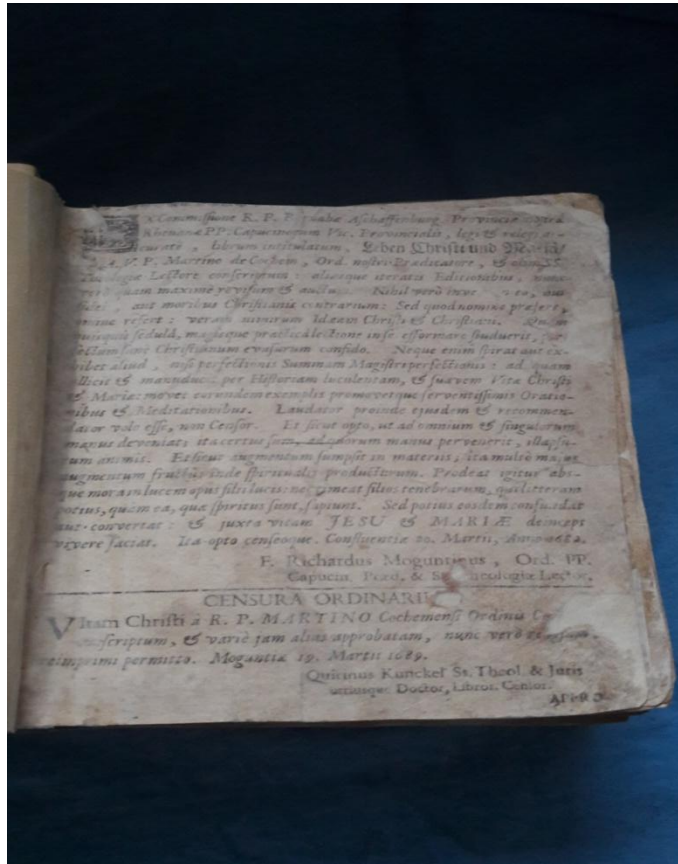 Ex Commissione R. P. Barnabæ Aschaffenburg. Provinciæ
Rhenanæ PP. Capucinorum Provincialis, legi & relegi ac-
curatè, librum intitulatum. Leben Christi und Mariä/
V. P. Martino de Cochem, Ord. nostri Prædicatore, & olim SS.
Lectore conscriptum: aliisque iteratis Editionibus, nunc
verò quam maximè revisum & auctum. Nihil verò inve
fidei, aut moribus Christianis contrarium: Sed quod nomine præfert,
omine refert: veram nimirum Idæam Christi & Christiani.
sedulâ, magisque practicâ lectione in se efformare studuerit, per-
fectum sanè Christianum evasurum confido. Neque enim spirat aut ex-
hibet aliud, nisi perfectionis Summam Magistri perfectionis: ad quam
allicit & manuducit per Historiam luculentam, & suavem Vitæ Christi
& Mariæ: movet eorundem exemplis promovetque serventissimis Oratio-
nibus & Meditationibus. Laudator proinde ejusdem & recommen-
dator volo esse, non Censor. Et sicut opto, ut ad omnium & singulorum
manus deveniat; ita certus sum, ad quorum manus pervenerit, illapsu-
rum animis. Et sicut augmentum sumpsit in materiis, ita multò majus
augmentum fructûs inde spiritualis producturum. Prodeat igitur abs-
que mora in lucem opus filii lucis: nec timeat filios tenebrarum, qui litteram
potius, quàm ea, quæ spiritus sunt, sapiunt. Sed potius eosdem confundat
aut convertat: & juxta vitam JESU & MARIÆ deinceps
vivere faciat. Ita opto censeoque. Confluentiæ 20. Martii, Anno
F. Richardus Moguntinus, Ord. PP.
Capucin. Præd. & SS. Theologiæ Lector.
CENSURA ORDINARII
VItam Christi à R. P. MARTINO Cochemensi Ordinis
conscriptum, & variè jam aliàs approbatam, nunc verò
reimprimi permitto. Moguntiæ 19. Martii 1689.
Quirinus Kunckel Ss. Theol. & Juris
utriusque Doctor, Libror. Censor.
APPRO-